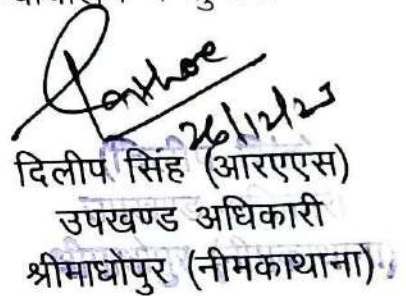 26/12/23
दिलीप सिंह (आरएएस)
उपखण्ड अधिकारी
श्रीमाधोपुर (नीमकाथाना)